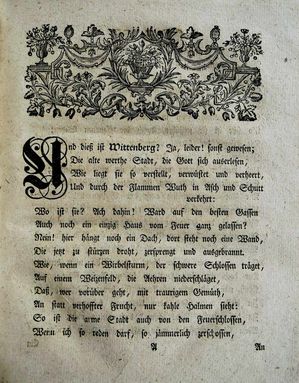 Und dieß ist Wittenberg? Ja, leider! sonst gewesen;
Die alte werthe Stadt, die Gott sich auserlesen;
Wie liegt sie so verstellt, verwüstet und verhört,
Und durch der Flammen Wuth in Asch und Schutt
verkehrt:
Wo ist sie? Ach dahin! Ward auf den besten Gassen
Auch noch ein einzig Haus vom Feuer ganz gelassen?
Nein! hier hängt noch ein Dach, dort steht noch eine Wand,
Die jetzt zu stürzen droht, zersprengt und ausgebrannt.
Wie, wenn ein Wirbelsturm, der schwere Schlossen träget,
Auf einem Weizenfeld, die Aehren niederschläget;
Daß, wer vorüber geht, mit traurigem Gemüth,
An statt verhoffter Frucht, nur kahle Halmen sieht:
So ist die arme Stadt auch von den Feuerschlossen,
Wenn ich so reden darf, so jämmerlich zerschossen,
A
An